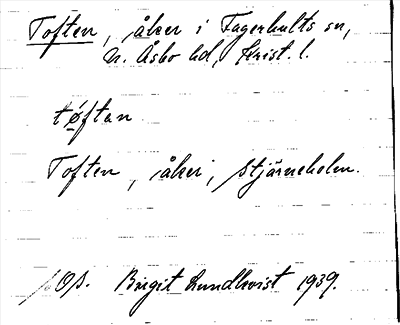 Toften, åker i Fagerhults sn,
N. Åsbo hd, Krist. l.
tøftan
Toften, åker, Stjärneholm.
Birgit Lundkvist 1939.